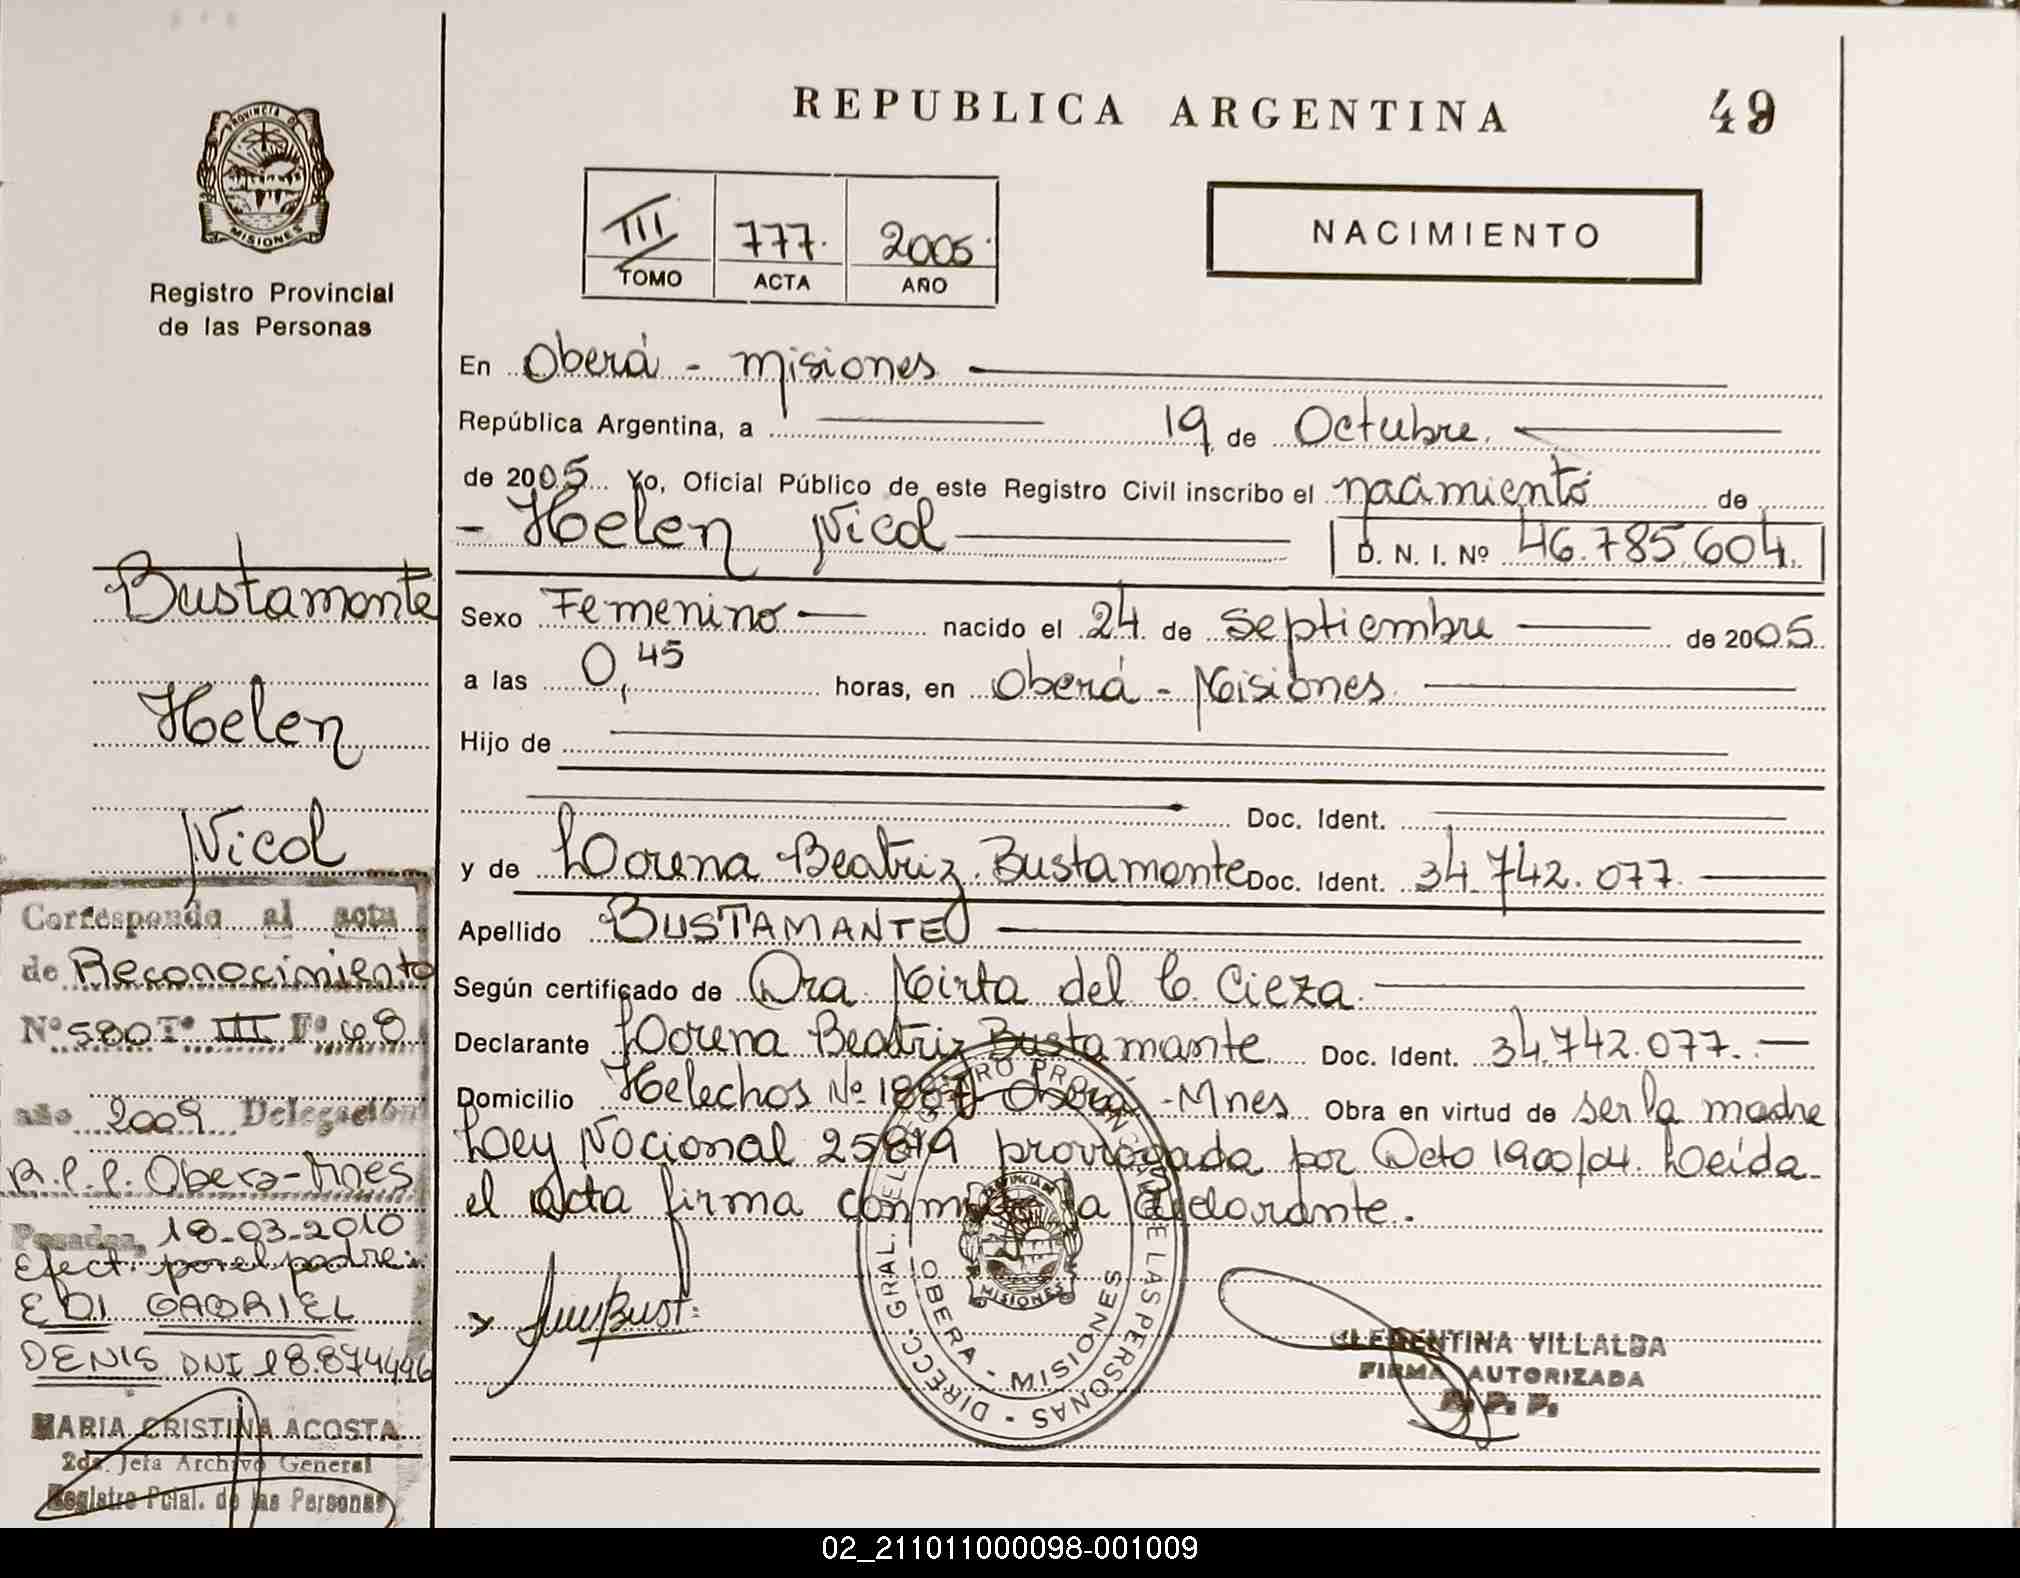 REPUBLICA ARGENTINA
49
PROVINCIA DE
MISIONES
Registro Provincial
de las Personas
III 777. 2005.
TOMO ACTA AÑO
NACIMIENTO
En Oberá - Misiones
República Argentina, a 19 de Octubre.
de 2005 Yo, Oficial Público de este Registro Civil inscribo el nacimiento de
- Helen Nicol
D. N. I. Nº 46.785.604.
Sexo Femenino nacido el 24 de Septiembre de 2005
a las 0,45 horas, en Oberá - Misiones
Hijo de
Doc. Ident.
y de Lorena Beatriz Bustamante Doc. Ident. 34.742.077.
Apellido BUSTAMANTE
Según certificado de Dra. Mirta del C. Cieza.
Declarante Lorena Beatriz Bustamante Doc. Ident. 34.742.077.
Domicilio Helechos Nº 1887 Oberá - Mnes Obra en virtud de ser la madre
Ley Nacional 25819 prorrogada por Dcto 1900/04. Leída
el acta firma conmigo la declarante.
DIRECC. GRAL. DEL REGISTRO PROVINCIAL DE LAS PERSONAS
OBERA - MISIONES
MISIONES
CLEMENTINA VILLALBA
FIRMA AUTORIZADA
R. P. P.
Bustamante
Helen
Nicol
Corresponde al acta
de Reconocimiento
Nº 580 Tº III Fº 48
año 2009 Delegación
R.P.P. Oberá - Mnes
Posadas, 18-03-2010
Efect. por el padre:
EDI GABRIEL
DENIS DNI 18.874446
MARIA CRISTINA ACOSTA
2da. Jefa Archivo General
Registro Pcial. de las Personas
02_211011000098-001009